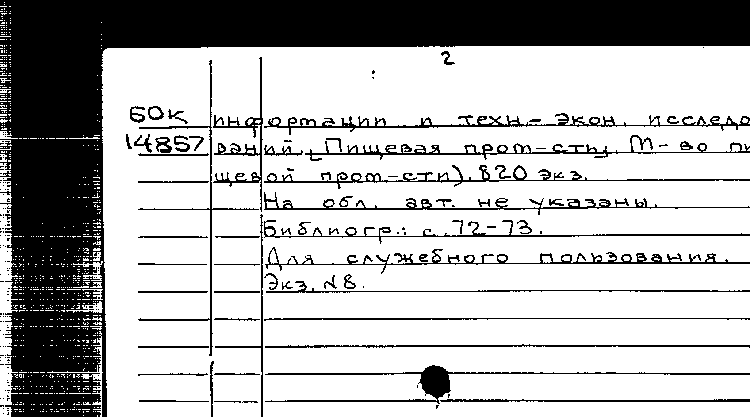 2
БОК информации и техн-экон. исследо
14857 ваний [Пищевая пром-сти], М-во пи
щевой пром-сти). 820 экз.
На обл. авт. не указаны.
Библиогр.: с. 72-73.
Для служебного пользования.
Экз. №8.